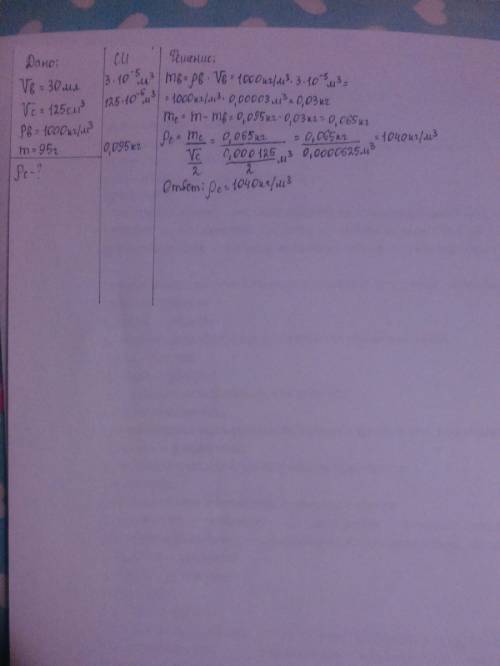 Дано:
Vв = 30 мл
Vс = 125 см³
ρв = 1000 кг/м³
m = 95 г
ρс - ?
СИ
3·10⁻⁵ м³
125·10⁻⁶ м³
0,095 кг
Решение:
mв = ρв · Vв = 1000 кг/м³ · 3·10⁻⁵ м³ =
= 1000 кг/м³ · 0,00003 м³ = 0,03 кг
mс = m - mв = 0,095 кг - 0,03 кг = 0,065 кг
ρс = mс / (Vс/2) = 0,065 кг / (0,000125/2 м³) = 0,065 кг / 0,0000625 м³ = 1040 кг/м³
Ответ: ρс = 1040 кг/м³